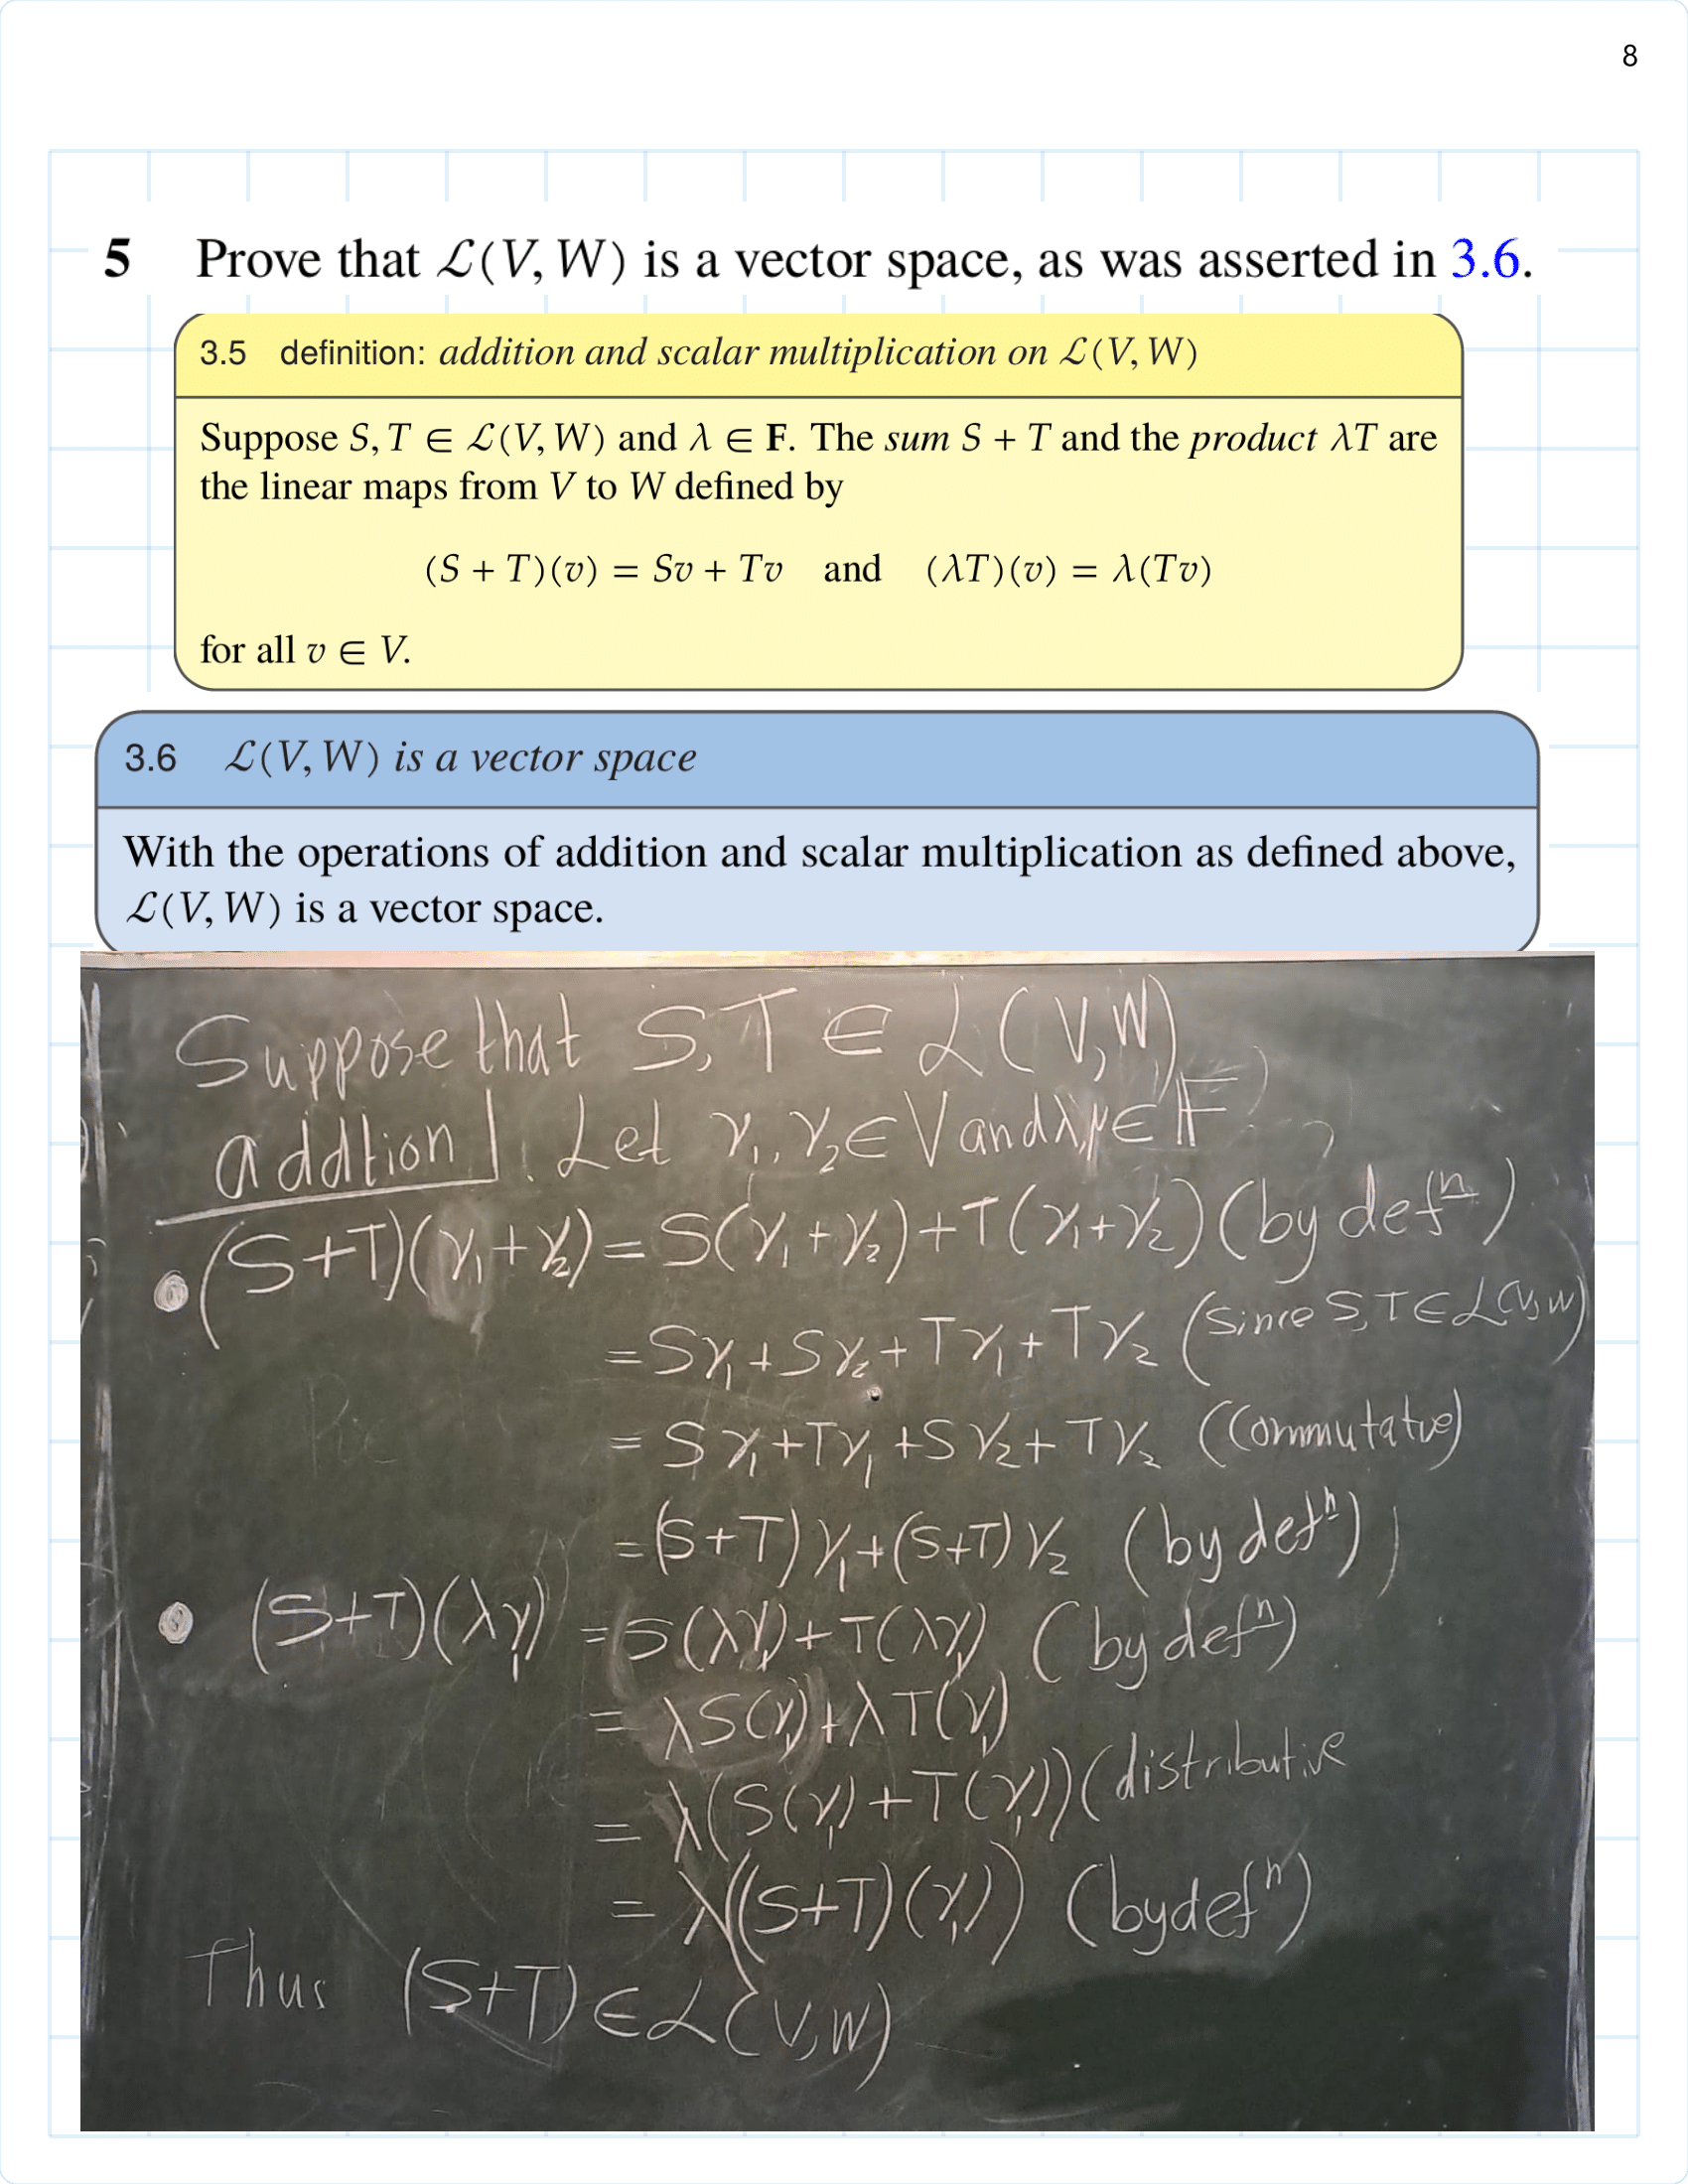 8
5 Prove that ℒ(V, W) is a vector space, as was asserted in 3.6.
3.5 definition: addition and scalar multiplication on ℒ(V, W)
Suppose S, T ∈ ℒ(V, W) and λ ∈ F. The sum S + T and the product λT are
the linear maps from V to W defined by
(S + T)(v) = Sv + Tv and (λT)(v) = λ(Tv)
for all v ∈ V.
3.6 ℒ(V, W) is a vector space
With the operations of addition and scalar multiplication as defined above,
ℒ(V, W) is a vector space.
Suppose that S, T ∈ ℒ(V, W)
addtion]. Let v₁, v₂ ∈ V and λ, μ ∈ 𝔽
• (S+T)(v₁+v₂) = S(v₁+v₂)+T(v₁+v₂) (by defⁿ)
= Sv₁+Sv₂+Tv₁+Tv₂ (Since S, T ∈ ℒ(V, W)
= Sv₁+Tv₁+Sv₂+Tv₂ (Commutatve)
= (S+T)v₁+(S+T)v₂ (by defⁿ)
• (S+T)(λv₁) = S(λv₁)+T(λv₁) (by defⁿ)
= λS(v₁)+λT(v₁)
= λ(S(v₁)+T(v₁)) (distributive
= λ((S+T)(v₁)) (by defⁿ)
Thus (S+T) ∈ ℒ(V, W)